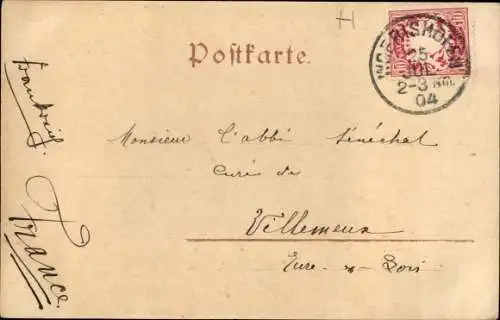 H
Postkarte.
WÖRISHOFEN
25
JUL
2-3 Nm.
04
10
Monsieur L'abbé Sénéchal
Curé de
Villemeux
Eure-&-Loir
Frankreich.
France